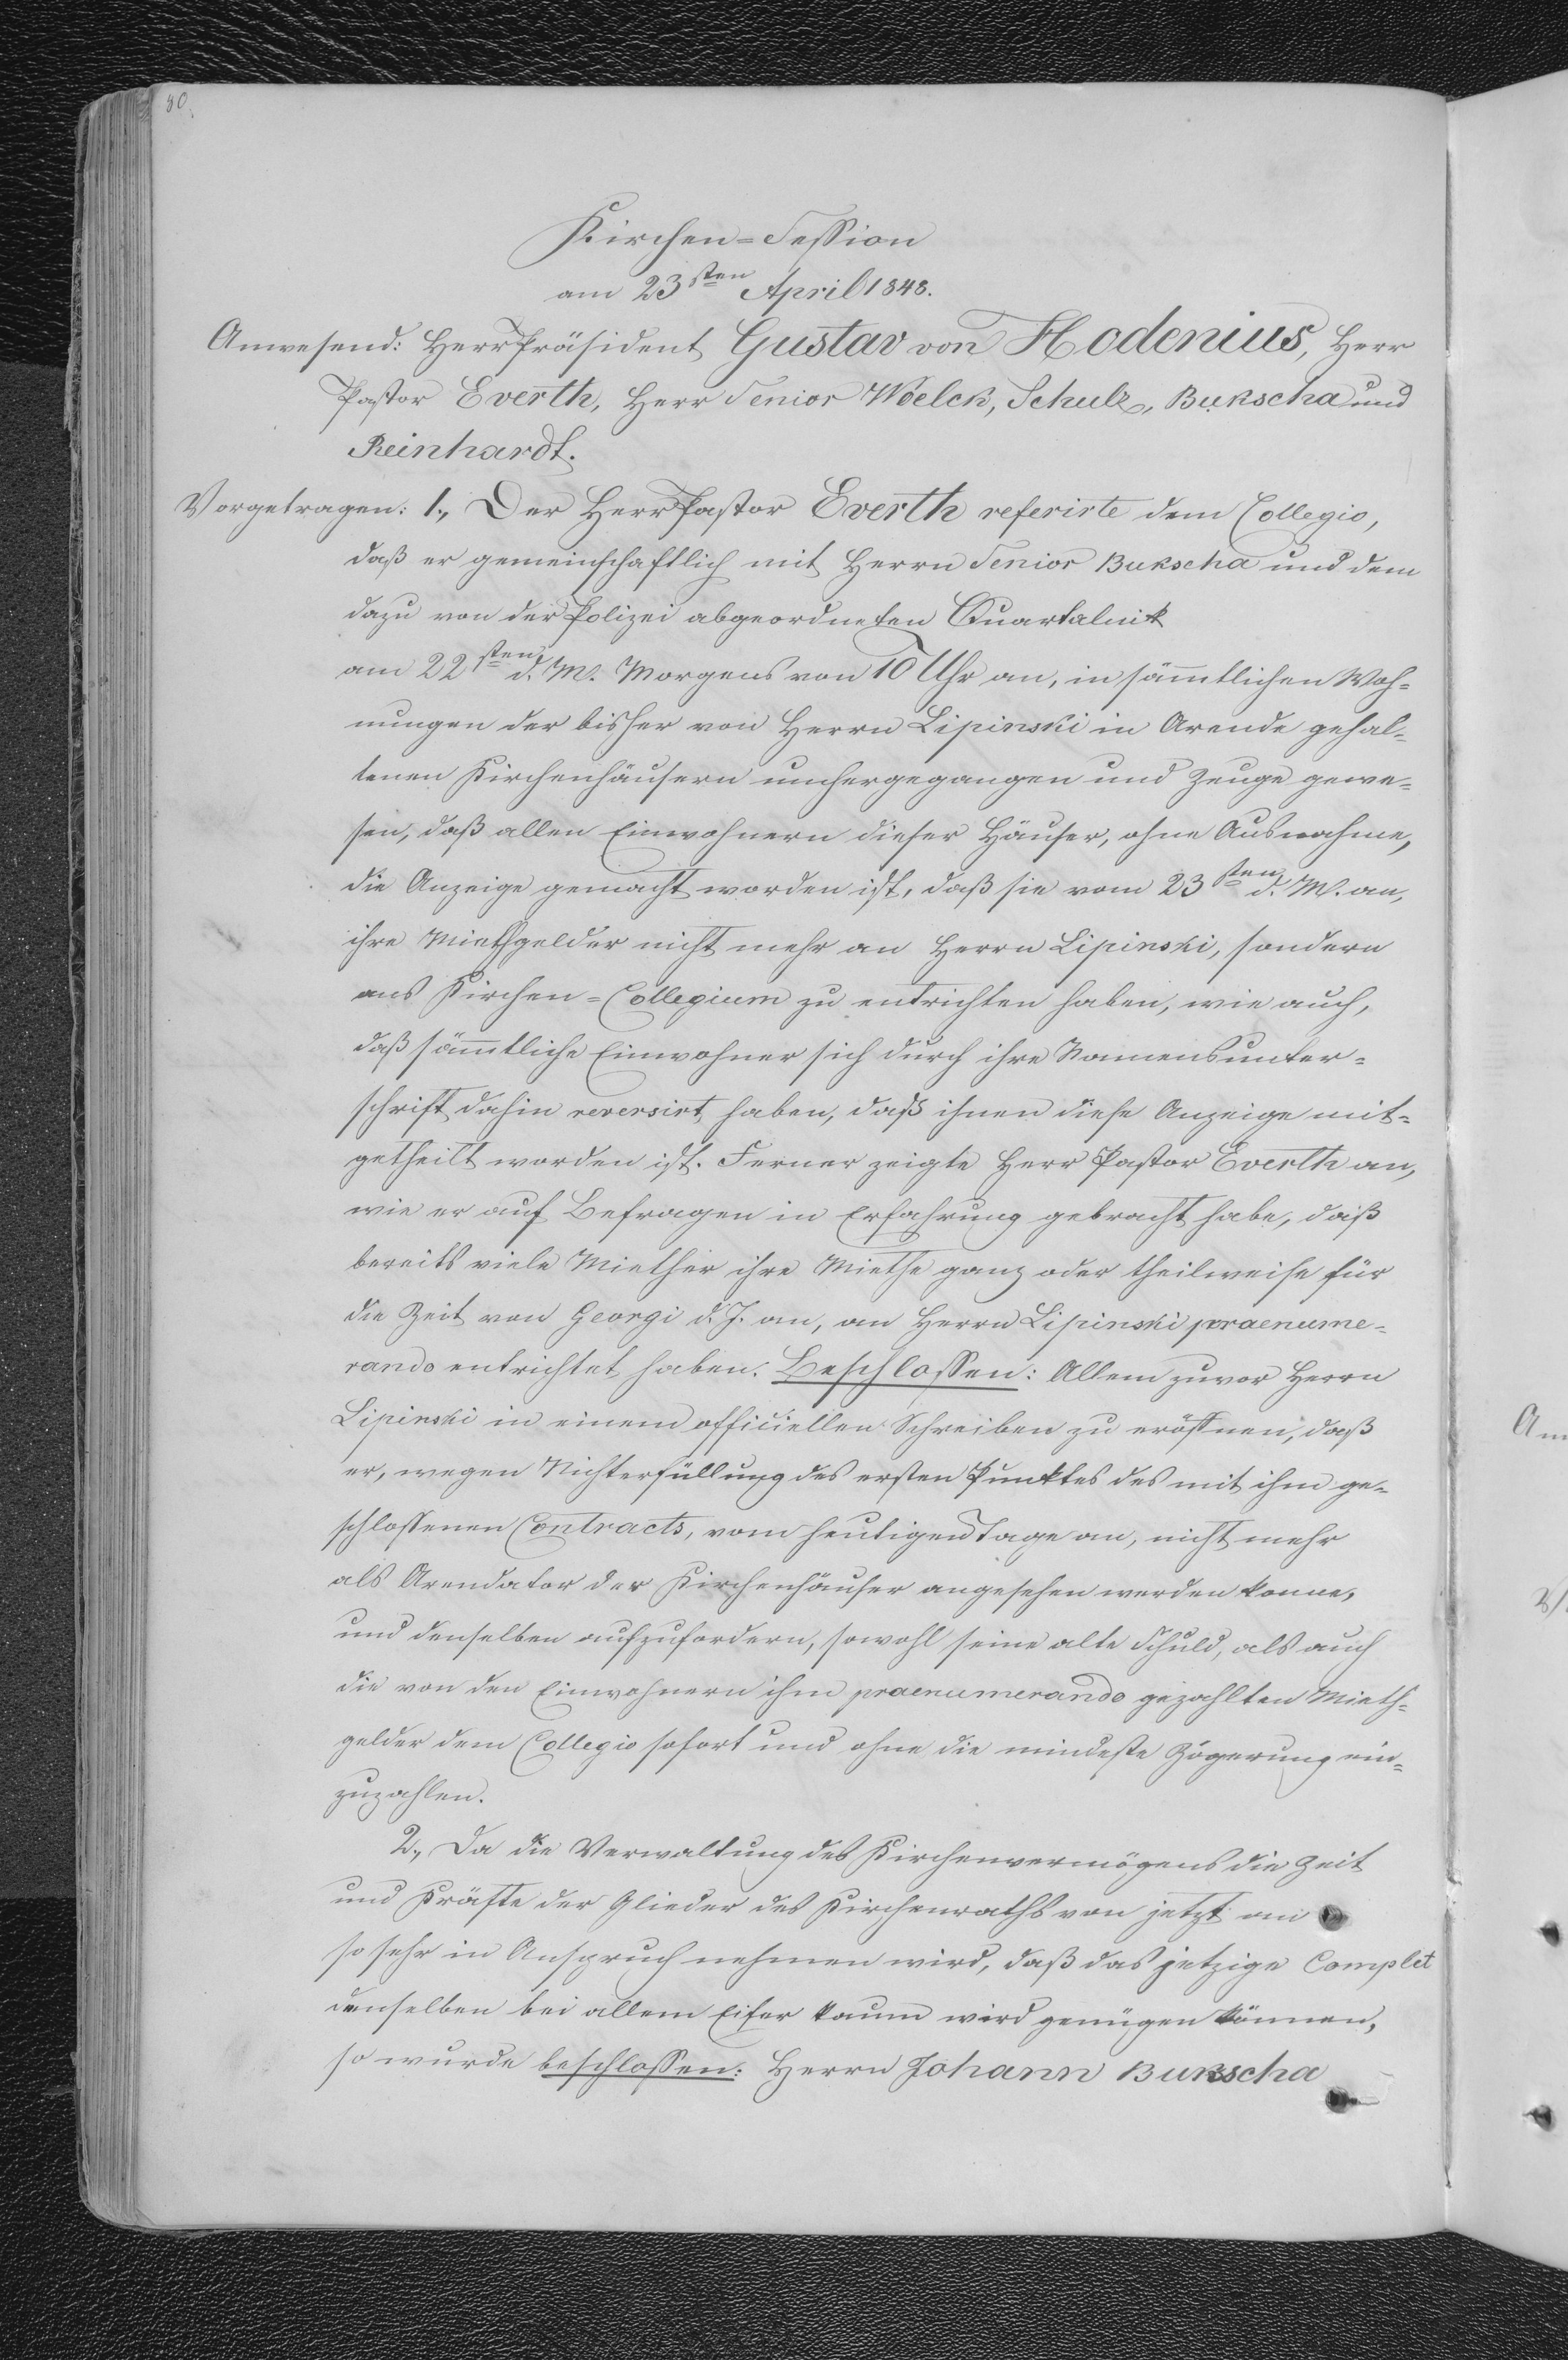 80.
Kirchen=Session
am 23sten April 1848.
Anwesend: Herr Präsident Gustav von Hodenius, Herr
Pastor Everth, Herr Senior Woelck, Schulz, Bukscha und
Reinhardt.
Vorgetragen: 1., Der Herr Pastor Everth referirte dem Collegio,
daß er gemeinschaftlich mit Herrn Senior Bukscha und dem
dazu von der Polizei abgeordneten Quartalnik
am 22sten d. M. Morgens von 10 Uhr an, in sämmtlichen Woh=
nungen der bisher von Herrn Lipinski in Arende gehal=
tenen Kirchenhäusern umhergegangen und Zeuge gewe=
sen, daß allen Einwohnern dieser Häuser, ohne Ausnahme,
die Anzeige gemacht worden ist, daß sie vom 23sten d. M. an,
ihre Miethgelder nicht mehr an Herrn Lipinski, sondern
ans Kirchen=Collegium zu entrichten haben, wie auch,
daß sämmtliche Einwohner sich durch ihre Namensunter=
schrift dahin reversirt haben, daß ihnen diese Anzeige mit=
getheilt worden ist. Ferner zeigte Herr Pastor Everth an,
wie er auf Befragen in Erfahrung gebracht habe, daß
bereits viele Miether ihre Miethe ganz oder theilweise für
die Zeit von Georgi d. J. an, an Herrn Lipinski praenume=
rando entrichtet haben. Beschlossen: Allem zuvor Herrn
Lipinski in einem officiellen Schreiben zu eröffnen, daß
er, wegen Nichterfüllung des ersten Punktes des mit ihm ge=
schlossenen Contracts, vom heutigen Tage an, nicht mehr
als Arendator der Kirchenhäuser angesehen werden konne,
und denselben aufzufordern, sowohl seine alte Schuld, als auch
die von den Einwohnern ihm praenumerando gezahlten Mieth=
gelder dem Collegio sofort und ohne die mindeste Zögerung ein=
zuzahlen.
2., Da die Verwaltung des Kirchenvermögens die Zeit
und Kräfte der Glieder des Kirchenraths von jetzt an
so sehr in Anspruch nehmen wird, daß das jetzige Complet
denselben bei allem Eifer kaum wird genügen können,
so wurde beschlossen: Herrn Johann Bukscha